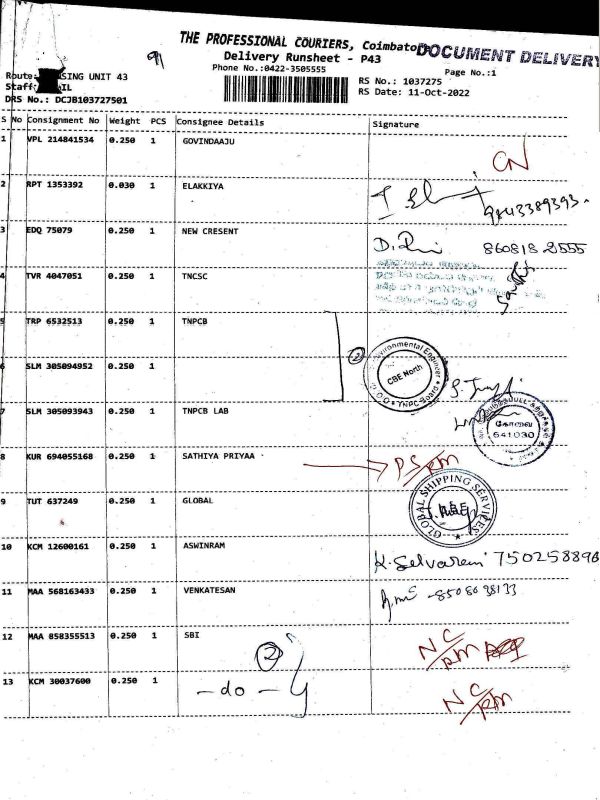 THE PROFESSIONAL COURIERS, Coimbatore
DOCUMENT DELIVERY
91
Delivery Runsheet - P43
Phone No.:0422-3505555
Page No.:1
Route: SING UNIT 43
RS No.: 1037275
Staff: IL
RS Date: 11-Oct-2022
DRS No.: DCJB103727501
S No Consignment No Weight PCS Consignee Details Signature
1 VPL 214841534 0.250 1 GOVINDAAJU
CN
2 RPT 1353392 0.030 1 ELAKKIYA
9843389393
3 EDQ 75079 0.250 1 NEW CRESENT
860818 2555
4 TVR 4047051 0.250 1 TNCSC
5 TRP 6532513 0.250 1 TNPCB
2
Environmental Engineer
CBE North
TNPC Board
6 SLM 305094952 0.250 1
7 SLM 305093943 0.250 1 TNPCB LAB
கோவை
641030
8 KUR 694055168 0.250 1 SATHIYA PRIYAA
PS/RM
9 TUT 637249 0.250 1 GLOBAL
GLOBAL SHIPPING SERVICES
10 KCM 12600161 0.250 1 ASWINRAM
K. Selvarani 750258896
11 MAA 568163433 0.250 1 VENKATESAN
12 MAA 858355513 0.250 1 SBI
2
NC/RM
13 KCM 30037600 0.250 1
-do-
NC/RM